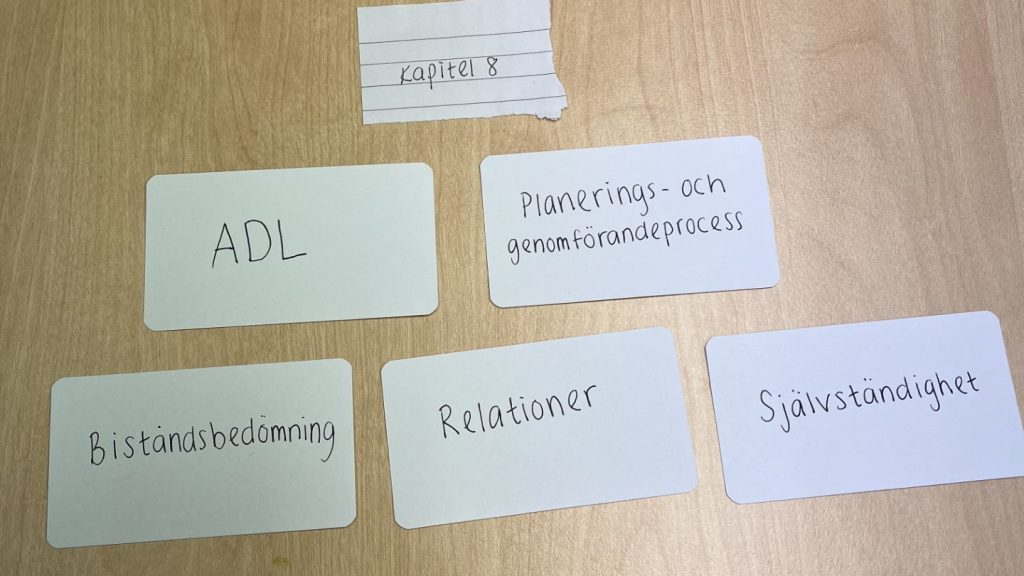 Kapitel 8
ADL
Planerings- och
genomförandeprocess
Biståndsbedömning
Relationer
Självständighet